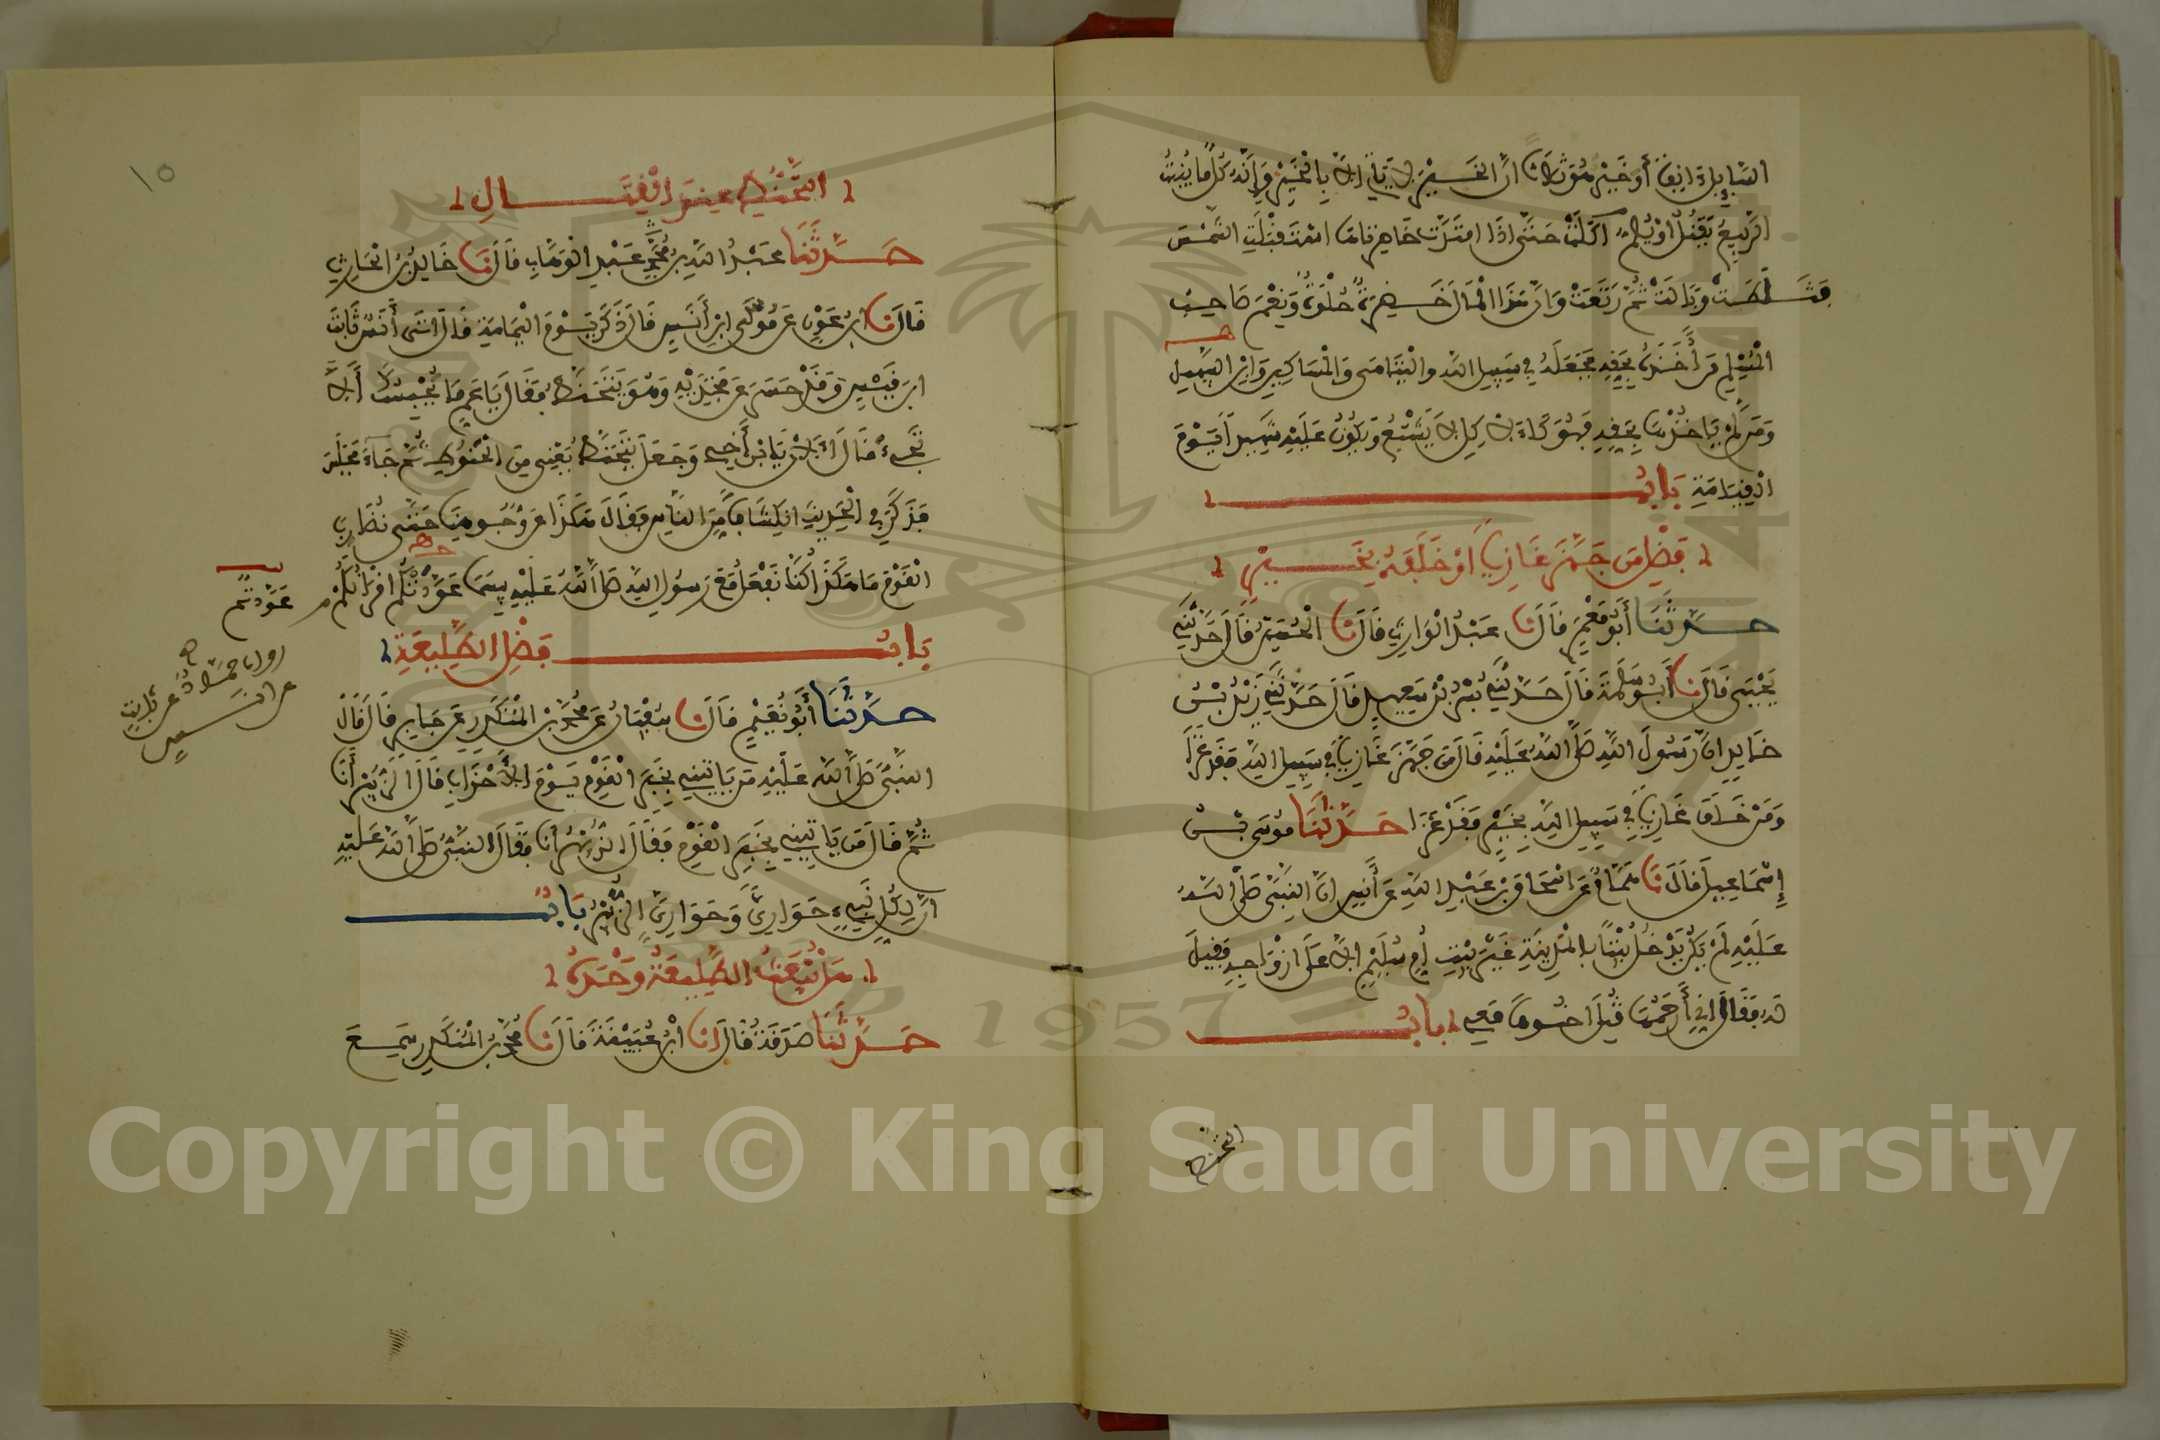 السايل انفا أو خير هو ثلاثا ان الخير لا ياتي الا بالخير وإنه كل ما ينبت
الربيع يقتل أو يلم أكلت حتى اذا امتدت خاصرتاها استقبلت الشمس
فثلطت وبالت ثم رتعت وان هذا المال خضرة حلوة ونعم صاحب
المسلم من أخذه بحقه فجعله في سبيل الله واليتامى والمساكين وابن السبيل
ومن لم ياخذها بحقه فهو كالآكل لا يشبع ويكون عليه شهيدا يوم
القيامة باب
فضل من جهز غازيا او خلفه بخير
حدثنا أبو معمر قال نا عبد الوارث قال نا الحسين قال حدثني
يحيى قال نا أبو سلمة قال حدثني بسر بن سعيد قال حدثني زيد بن
خالد ان رسول الله صلى الله عليه قال من جهز غازيا في سبيل الله فقد غزا
ومن خلف غازيا في سبيل الله بخير فقد غزا حدثنا موسى بن
إسماعيل قال نا همام عن اسحاق بن عبد الله عن أنس ان النبي صلى الله
عليه لم يكن يدخل بيتا بالمدينة غير بيت ام سليم الا على ازواجه فقيل
له فقال اني أرحمها قتل اخوها معي باب
التحنط
١٥
التحنط عند القتال
حدثنا عبد الله بن عبد الوهاب قال نا خالد بن الحارث
قال نا ابن عون عن موسى ابن أنس قال ذكر يوم اليمامة قال اتى أنس ثابت
ابن قيس وقد حسر عن فخذيه وهو يتحنط فقال يا عم ما يحبسك ألا
تجيء قال الآن يا بن أخي وجعل يتحنط يعني من الحنوط ثم جاء فجلس
فذكر في الحديث انكشافا من الناس فقال هكذا عن وجوهنا حتى نضارب
القوم ما هكذا كنا نفعل مع رسول الله صلى الله عليه بيسما عودتكم اقرانكم
عودتم
رواه حماد عن ثابت
عن انس
باب فضل الطليعة
حدثنا أبو نعيم قال نا سفيان عن محمد بن المنكدر عن جابر قال قال
النبي صلى الله عليه من ياتيني بخبر القوم يوم الأحزاب قال الزبير أنا
ثم قال من ياتيني بخبر القوم فقال الزبير أنا فقال النبي صلى الله عليه
ان لكل نبي حواري وحواري الزبير باب
هل تبعث الطليعة وحده
حدثنا صدقة قال انا ابن عيينة قال نا محمد بن المنكدر سمع
1957
Copyright © King Saud University